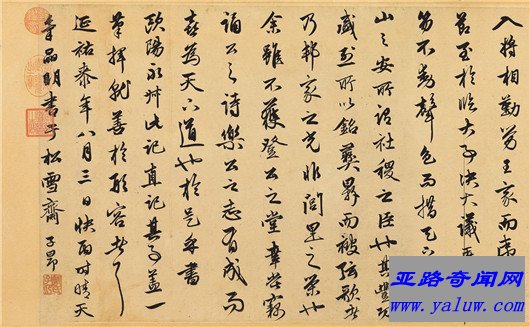 入將相勤勞王家而夷
節至於臨大事決大議垂
笏不動聲色而措天下
山之安所謂社稷之臣也其豐功
盛烈所以銘彝鼎而被弦歌者
乃邦家之光非閭里之榮也
余雖不獲登公之堂幸嘗竊
誦公之詩樂公之志有成而
喜為天下道也於是乎書
歐陽永叔此記真記其事蓋一
筆揮就善於形容者
延祐泰年八月三日快雨時晴天
品明書于松雪齋 子昂
亚路奇闻网
www.yaluw.com